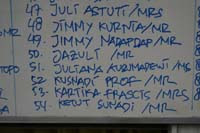 47 JULI ASTUTI /MRS
48 JIMMY KURNIA/MR
49. JIMMY NADAPDAP/MR
50. JAZULI /MR
51. JULIANA KUSUMADEWI /MS
52 KUSNADI PROF /MR
53 KARTIKA FRASCIS /MRS
54. KETUT SUNADI /MR